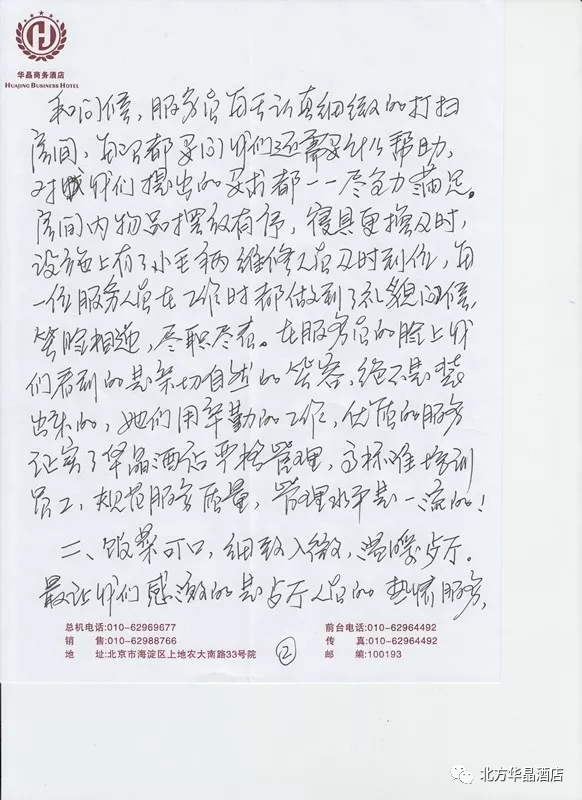 华晶商务酒店
HUAJING BUSINESS HOTEL
和问候，服务员每天认真细致的打扫
房间，每次都要问我们还需要什么帮助，
对我们提出的要求都一一尽全力满足。
房间内物品摆放有序，寝具更换及时，
设施上有了小毛病维修人员及时到位，每
一位服务人员在工作时都做到了礼貌问候，
笑脸相迎，尽职尽责。在服务员的脸上我
们看到的是亲切自然的笑容，绝不是装
出来的，她们用辛勤的工作，优质的服务
证实了华晶酒店严格管理，高标准培训
员工，规范服务质量，管理水平是一流的！
二、饭菜可口，细致入微，温暖步厅。
最让我们感激的是步厅人员的热情服务，
总机电话:010-62969677
前台电话:010-62964492
销 售:010-62988766
传 真:010-62964492
地 址:北京市海淀区上地农大南路33号院
邮 编:100193
②
北方华晶酒店